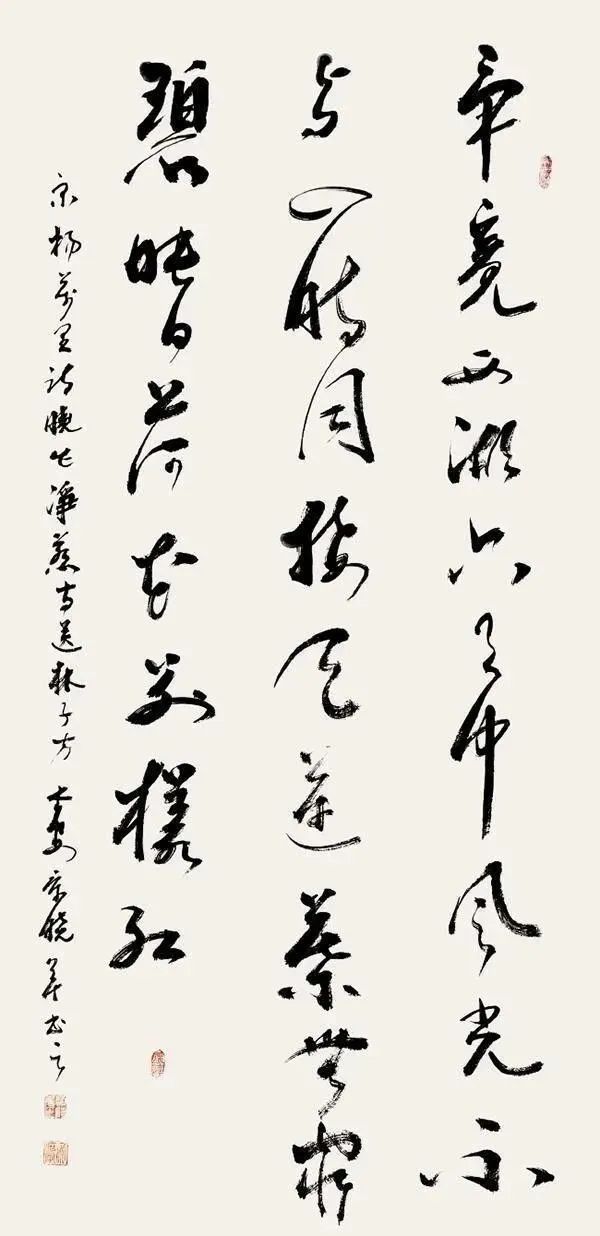 畢竟西湖六月中風光不
與四時同接天蓮葉無窮
碧映日荷花別樣紅
宋楊萬里詩曉出淨慈寺送林子方 曉華書